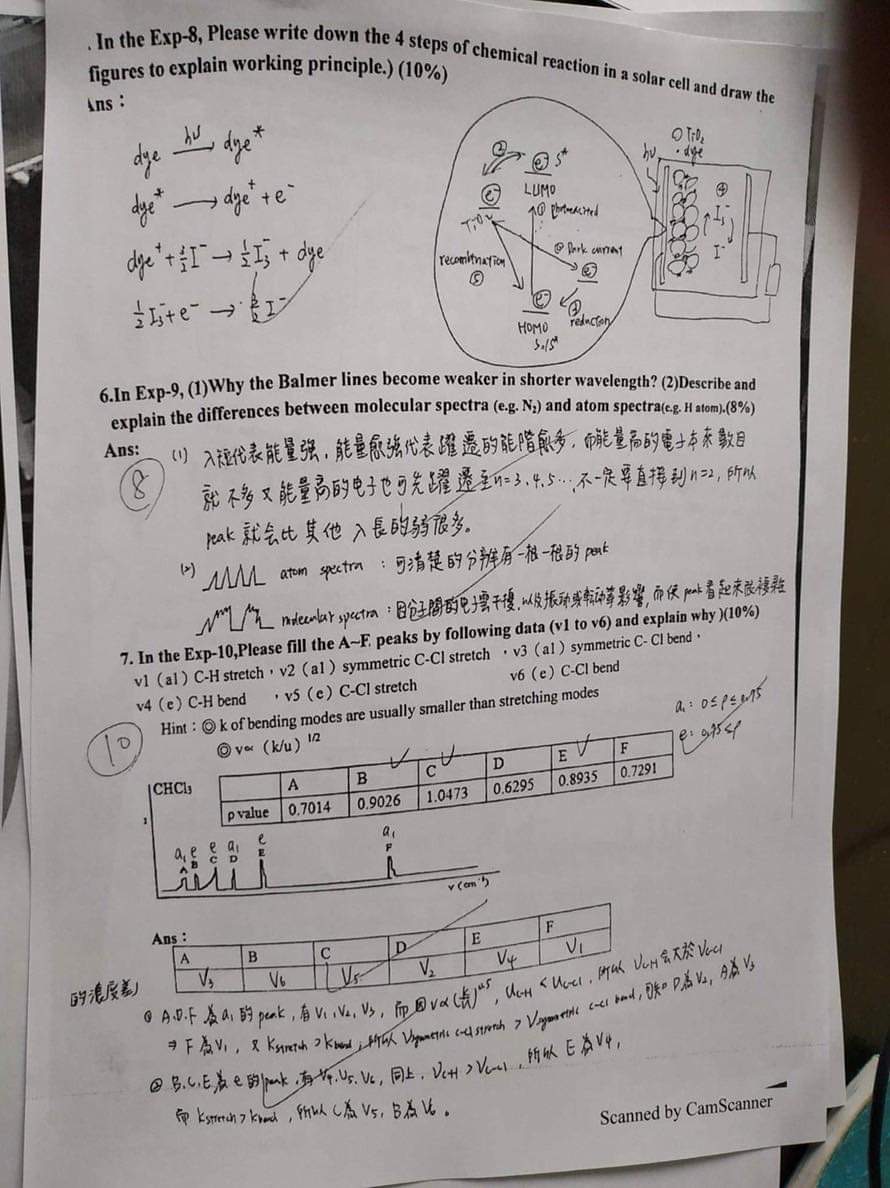 . In the Exp-8, Please write down the 4 steps of chemical reaction in a solar cell and draw the
figures to explain working principle.) (10%)
Ans：
dye —hν→ dye*
dye* → dye⁺ + e⁻
dye⁺ + 3/2 I⁻ → 1/2 I₃⁻ + dye
1/2 I₃⁻ + e⁻ → 3/2 I⁻
② e⁻ S*
LUMO
e⁻
TiO₂
① photoexcited
recombination
⑤
Dark current
e⁻
e⁻
③
reduction
HOMO
hν
○ TiO₂
· dye
⊕
I₃⁻
I⁻
6.In Exp-9, (1)Why the Balmer lines become weaker in shorter wavelength? (2)Describe and
explain the differences between molecular spectra (e.g. N₂) and atom spectra(e.g. H atom).(8%)
Ans:
8
(1) λ短代表能量強，能量愈強代表躍遷的能階愈多，而能量高的電子本來數目
就不多又能量高的电子也可先躍遷至n=3.4.5…，不一定要直接到n=2，所以
peak 就会比其他λ長的弱很多。
(2) atom spectra：可清楚的分辨有一根一根的 peak
molecular spectra：因分子間的电子雲干擾，以及振动或転动等影響，而使peak看起來很複雜
7. In the Exp-10,Please fill the A~F peaks by following data (v1 to v6) and explain why )(10%)
v1 (a1) C-H stretch，v2 (a1) symmetric C-Cl stretch ，v3 (a1) symmetric C- Cl bend，
v4 (e) C-H bend ，v5 (e) C-Cl stretch v6 (e) C-Cl bend
10
Hint：◎ k of bending modes are usually smaller than stretching modes
◎ v∝ (k/u) 1/2
a₁: 0≤ρ≤0.75
e: 0.75≤ρ
CHCl₃
A B C D E F
ρ value 0.7014 0.9026 1.0473 0.6295 0.8935 0.7291
a₁ e e a₁ e a₁
A B C D E F
v (cm⁻¹)
Ans：
A B C D E F
V₃ V₆ V₅ V₂ V₄ V₁
的濃度差)
① A.D.F 為 a₁ 的 peak，有 V₁,V₂,V₃，而因 v∝(k/u)^0.5，UC-H < UC-Cl，所以 VC-H 会大於 VC-Cl
⇒ F為V₁，又 Kstretch > Kbend，所以 Vsymmetric C-Cl stretch > Vsymmetric C-Cl bend，可知 D為V₂，A為V₃
② B.C.E為e的peak，有V₄.V₅.V₆，同上，VC-H > VC-Cl，所以E為V₄，
而 Kstretch > Kbend，所以C為V₅，B為V₆。
Scanned by CamScanner